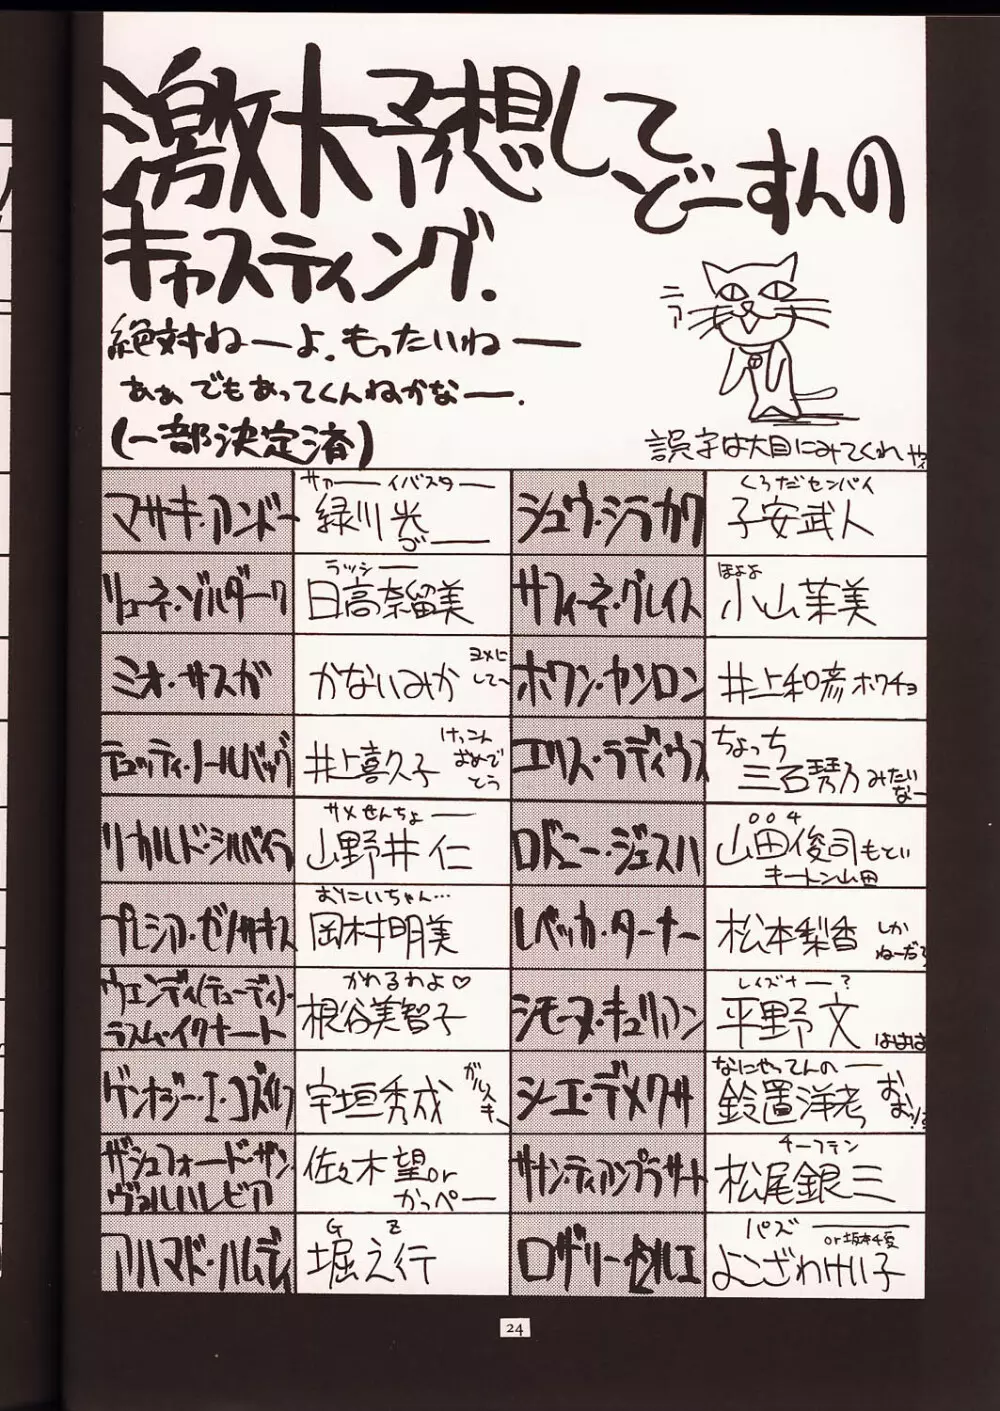 激大予想してどーすんの
キャスティング.
絶対ねーよ。もったいねー
あぁ、でもあってくんねかなー.
(一部決定済)
ニァ
誤字は大目にみてくれや
マサキ・アンドー
サァーイバスター
緑川光
ごー
シュウ・シラカワ
くろだセンパイ
子安武人
リューネ・ゾルダーク
ラッシー
日高奈留美
サフィーネ・グレイス
ほよよ
小山茉美
ミオ・サスガ
かないみか
ヨメに
して〜
ホワン・ヤンロン
井上和彦 ホワチョ
テュッティ・ノールバック
井上喜久子
けっこん
おめで
とう
エリス・ラディウス
ちょっち
三石琴乃 みたい
なー
リカルド・シルベイラ
サメせんちょー
山野井仁
ロドニー・ジェスハ
004
山田俊司 もとい
キートン山田
プレシア・ゼノサキス
おにいちゃん…
岡村明美
レベッカ・ターナー
松本梨香
しか
ねーだろ
ウェンディ(テューディ)・
ラスム・イクナート
かわるわよ♡
根谷美智子
シモーヌ・キュリアン
レイズナー?
平野文
ははは
ゲンナジー・I・コズイレフ
宇垣秀成
ガルスキー
シーエ・デメクサ
なにやってんのー
鈴置洋孝
おおっ!
ザシュフォード・ザン・
ヴァルハレビア
佐々木望or
かっぺー
サナン・ティアンプラサート
チーフテン
松尾銀三
アハマド・ハムディ
G Z
堀之行
ロザリー・セルエ
パズー
or坂本千夏
よこざわけい子
24